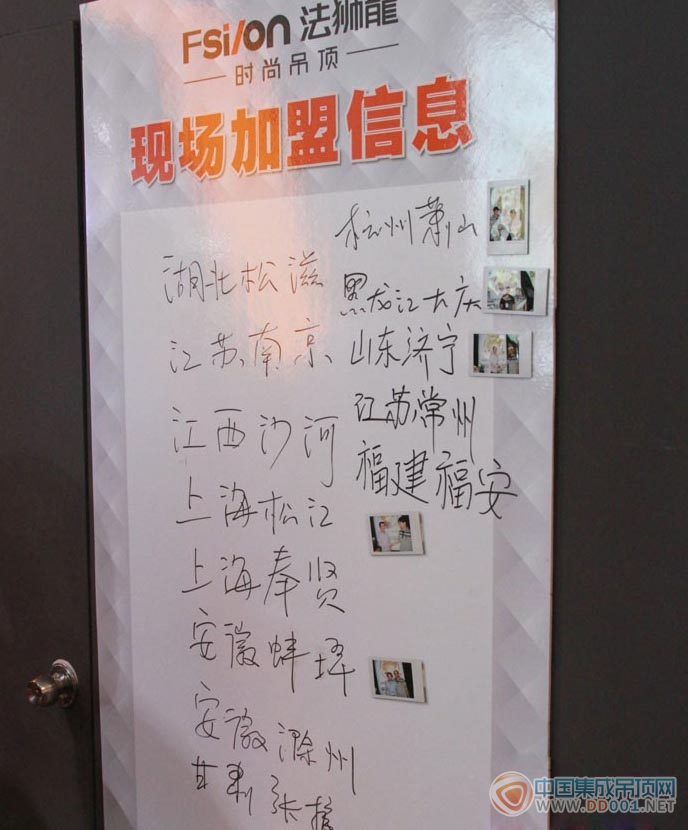 FSilon 法狮龍
时尚吊顶
现场加盟信息
杭州萧山
湖北松滋
黑龙江大庆
江苏南京
山东济宁
江西沙河
江苏常州
福建福安
上海松江
上海奉贤
安徽蚌埠
安徽滁州
甘肃张掖
中国集成吊顶网
WWW.DD001.NET